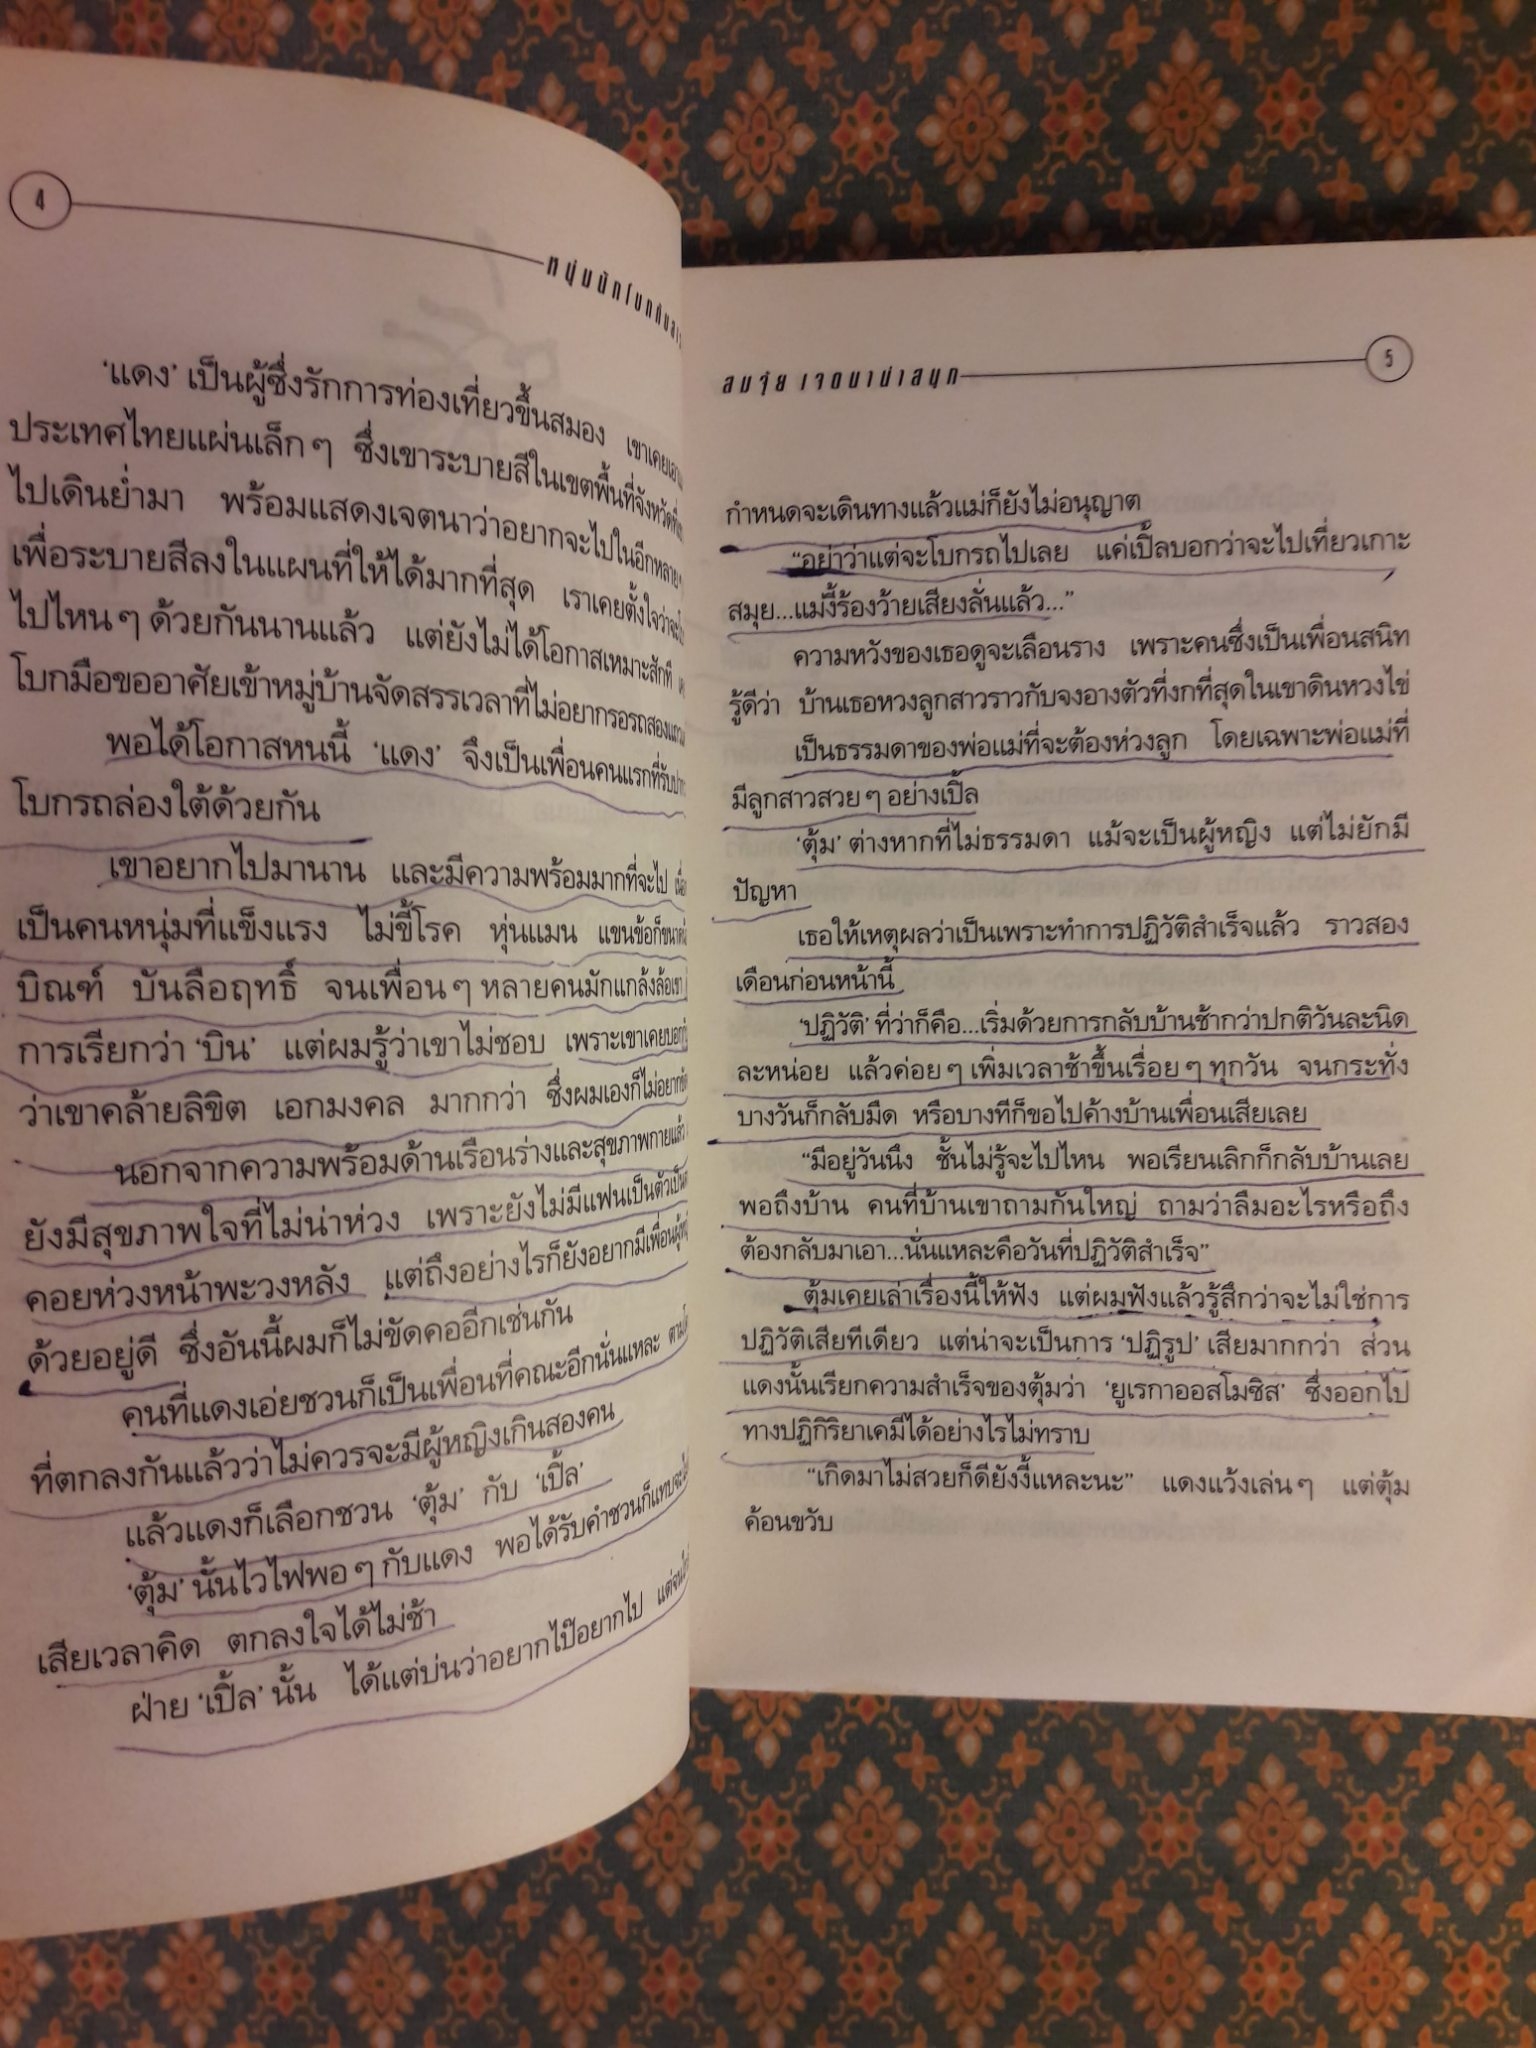 4
หนุ่มนักโบกกับสาว
'แดง' เป็นผู้ซึ่งรักการท่องเที่ยวขึ้นสมอง เขาเคยเอา
ประเทศไทยแผ่นเล็กๆ ซึ่งเขาระบายสีในเขตพื้นที่จังหวัดที่
ไปเดินย่ำมา พร้อมแสดงเจตนาว่าอยากจะไปในอีกหลายๆ
เพื่อระบายสีลงในแผนที่ให้ได้มากที่สุด เราเคยตั้งใจว่าจะ
ไปไหนๆ ด้วยกันนานแล้ว แต่ยังไม่ได้โอกาสเหมาะสักที
โบกมือขออาศัยเข้าหมู่บ้านจัดสรรเวลาที่ไม่อยากรอรถสองแถว
พอได้โอกาสหนนี้ 'แดง' จึงเป็นเพื่อนคนแรกที่รับปาก
โบกรถล่องใต้ด้วยกัน
เขาอยากไปมานาน และมีความพร้อมมากที่จะไป
เป็นคนหนุ่มที่แข็งแรง ไม่ขี้โรค หุ่นแมน แขนข้อก็ขนาด
บิณฑ์ บันลือฤทธิ์ จนเพื่อนๆ หลายคนมักแกล้งล้อเขา
การเรียกว่า 'บิน' แต่ผมรู้ว่าเขาไม่ชอบ เพราะเขาเคยบอก
ว่าเขาคล้ายลิขิต เอกมงคล มากกว่า ซึ่งผมเองก็ไม่อยาก
นอกจากความพร้อมด้านเรือนร่างและสุขภาพกายแล้ว
ยังมีสุขภาพใจที่ไม่น่าห่วง เพราะยังไม่มีแฟนเป็นตัวเป็น
คอยห่วงหน้าพะวงหลัง แต่ถึงอย่างไรก็ยังอยากมีเพื่อน
ด้วยอยู่ดี ซึ่งอันนี้ผมก็ไม่ขัดคออีกเช่นกัน
คนที่แดงเอ่ยชวนก็เป็นเพื่อนที่คณะอีกนั่นแหละ
ที่ตกลงกันแล้วว่าไม่ควรจะมีผู้หญิงเกินสองคน
แล้วแดงก็เลือกชวน 'ตุ้ม' กับ 'เปิ้ล'
'ตุ้ม' นั้นไวไฟพอๆ กับแดง พอได้รับคำชวนก็แทบจะ
เสียเวลาคิด ตกลงใจได้ไม่ช้า
ฝ่าย 'เปิ้ล' นั้น ได้แต่บ่นว่าอยากไป๊อยากไป
สมจุ้ย เจตนาน่าสนุก
5
กำหนดจะเดินทางแล้วแม่ก็ยังไม่อนุญาต
"อย่าว่าแต่จะโบกรถไปเลย แค่เปิ้ลบอกว่าจะไปเที่ยวเกาะ
สมุย...แม่งี้ร้องว้ายเสียงลั่นแล้ว..."
ความหวังของเธอดูจะเลือนราง เพราะคนซึ่งเป็นเพื่อนสนิท
รู้ดีว่า บ้านเธอหวงลูกสาวราวกับจงอางตัวที่งกที่สุดในเขาดินหวงไข่
เป็นธรรมดาของพ่อแม่ที่จะต้องห่วงลูก โดยเฉพาะพ่อแม่ที่
มีลูกสาวสวยๆ อย่างเปิ้ล
'ตุ้ม' ต่างหากที่ไม่ธรรมดา แม้จะเป็นผู้หญิง แต่ไม่ยักมี
ปัญหา
เธอให้เหตุผลว่าเป็นเพราะทำการปฏิวัติสำเร็จแล้ว ราวสอง
เดือนก่อนหน้านี้
'ปฏิวัติ' ที่ว่าก็คือ...เริ่มด้วยการกลับบ้านช้ากว่าปกติวันละนิด
ละหน่อย แล้วค่อยๆ เพิ่มเวลาช้าขึ้นเรื่อยๆ ทุกวัน จนกระทั่ง
บางวันก็กลับมืด หรือบางทีก็ขอไปค้างบ้านเพื่อนเสียเลย
"มีอยู่วันนึง ชั้นไม่รู้จะไปไหน พอเรียนเลิกก็กลับบ้านเลย
พอถึงบ้าน คนที่บ้านเขาถามกันใหญ่ ถามว่าลืมอะไรหรือถึง
ต้องกลับมาเอา...นั่นแหละคือวันที่ปฏิวัติสำเร็จ"
ตุ้มเคยเล่าเรื่องนี้ให้ฟัง แต่ผมฟังแล้วรู้สึกว่าจะไม่ใช่การ
ปฏิวัติเสียทีเดียว แต่น่าจะเป็นการ 'ปฏิรูป' เสียมากกว่า ส่วน
แดงนั้นเรียกความสำเร็จของตุ้มว่า 'ยูเรกาออสโมซิส' ซึ่งออกไป
ทางปฏิกิริยาเคมีได้อย่างไรไม่ทราบ
"เกิดมาไม่สวยก็ดียังงี้แหละนะ" แดงแว้งเล่นๆ แต่ตุ้ม
ค้อนขวับ